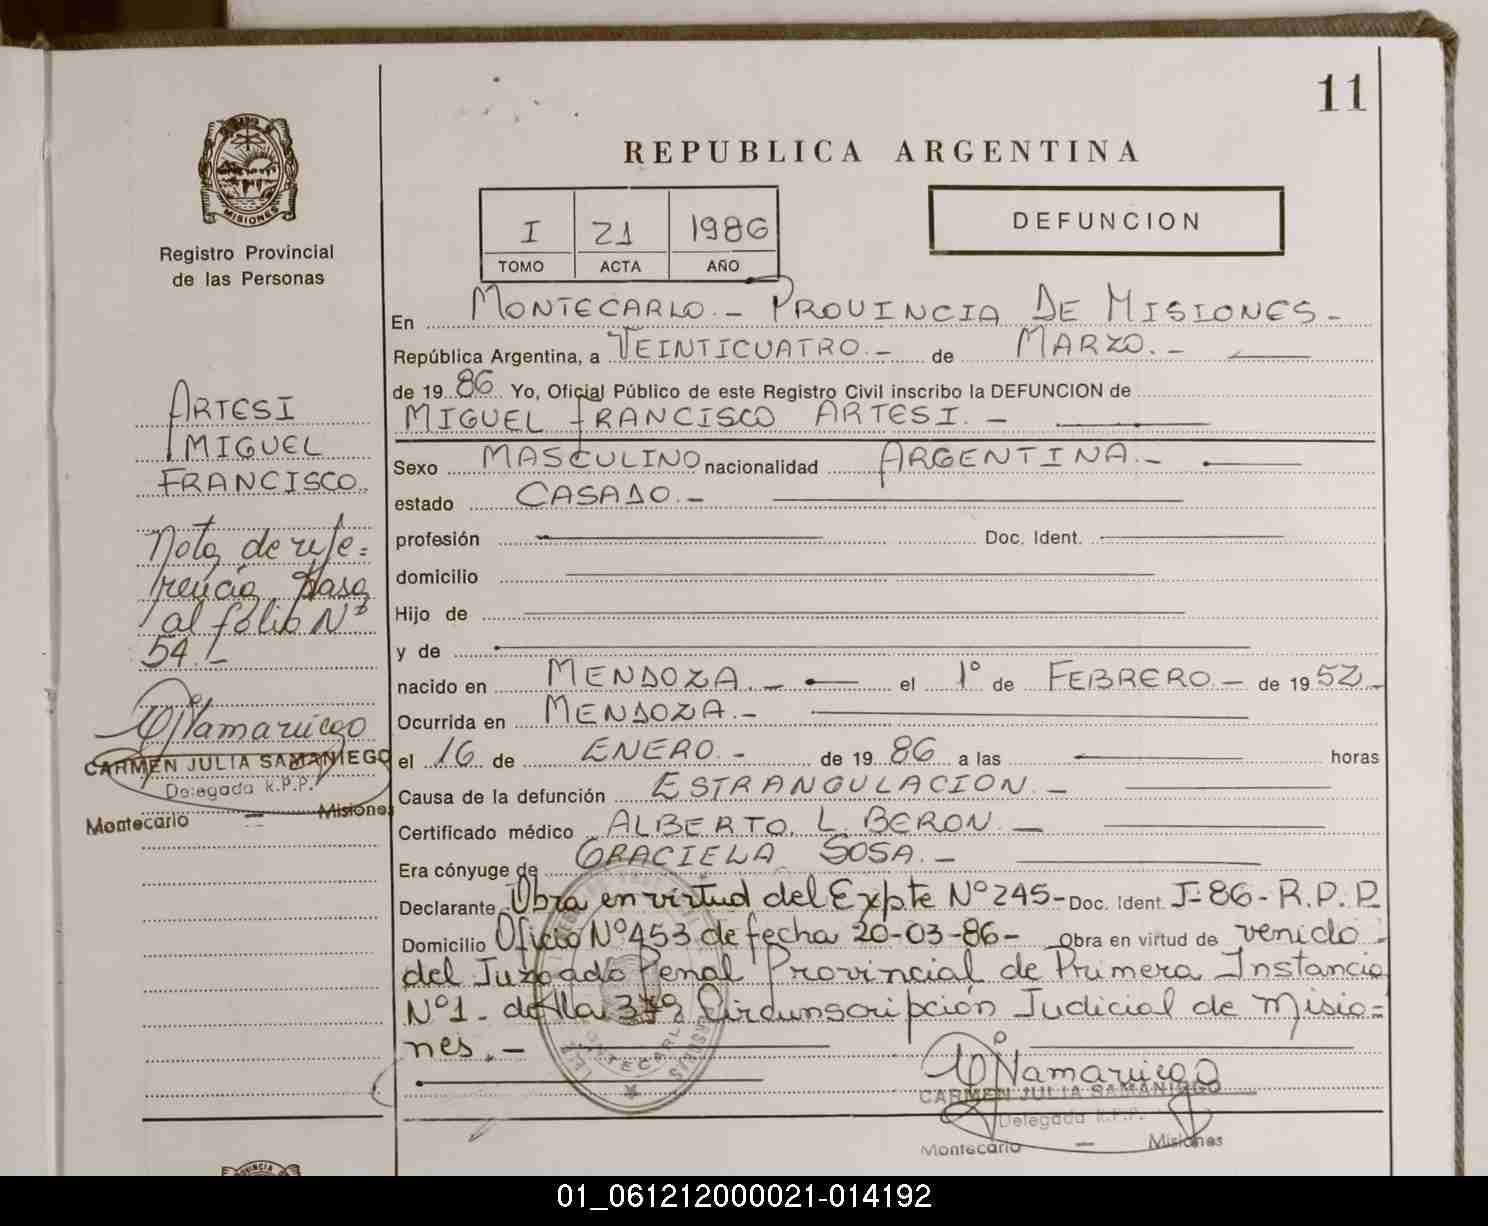 11
REPUBLICA ARGENTINA
MISIONES
Registro Provincial
de las Personas
I 21 1986
TOMO ACTA AÑO
DEFUNCION
En MONTECARLO.- PROVINCIA DE MISIONES.-
República Argentina, a VEINTICUATRO.- de MARZO.-
de 19 86 Yo, Oficial Público de este Registro Civil inscribo la DEFUNCION de
MIGUEL FRANCISCO ARTESI.-
Sexo MASCULINO nacionalidad ARGENTINA.-
estado CASADO.-
profesión Doc. Ident.
domicilio
Hijo de
y de
nacido en MENDOZA.- el 1º de FEBRERO.- de 19 52.-
Ocurrida en MENDOZA.-
el 16 de ENERO.- de 19 86 a las horas
Causa de la defunción ESTRANGULACION.-
Certificado médico ALBERTO L. BERON.-
Era cónyuge de GRACIELA SOSA.-
Declarante Obra en virtud del Expte Nº 245- Doc. Ident. J-86-R.P.P
Domicilio Oficio Nº 453 de fecha 20-03-86- Obra en virtud de venido
del Juzgado Penal Provincial de Primera Instancia
Nº1- de la 3ª Circunscripción Judicial de Misio=
nes.-
CARMEN JULIA SAMANIEGO
Delegada R.P.P.
Montecarlo — Misiones
ARTESI
MIGUEL
FRANCISCO.
Nota de refe=
rencia pasa
al folio Nº
54.-
CARMEN JULIA SAMANIEGO
Delegada R.P.P.
Montecarlo — Misiones
01_061212000021-014192